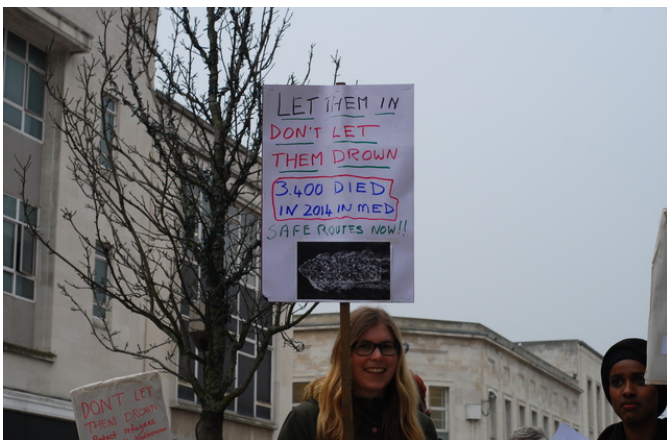 LET THEM IN
DON'T LET
THEM DROWN
3.400 DIED
IN 2014 IN MED
SAFE ROUTES NOW!!
DON'T LET
THEM DROWN
Protect refugees